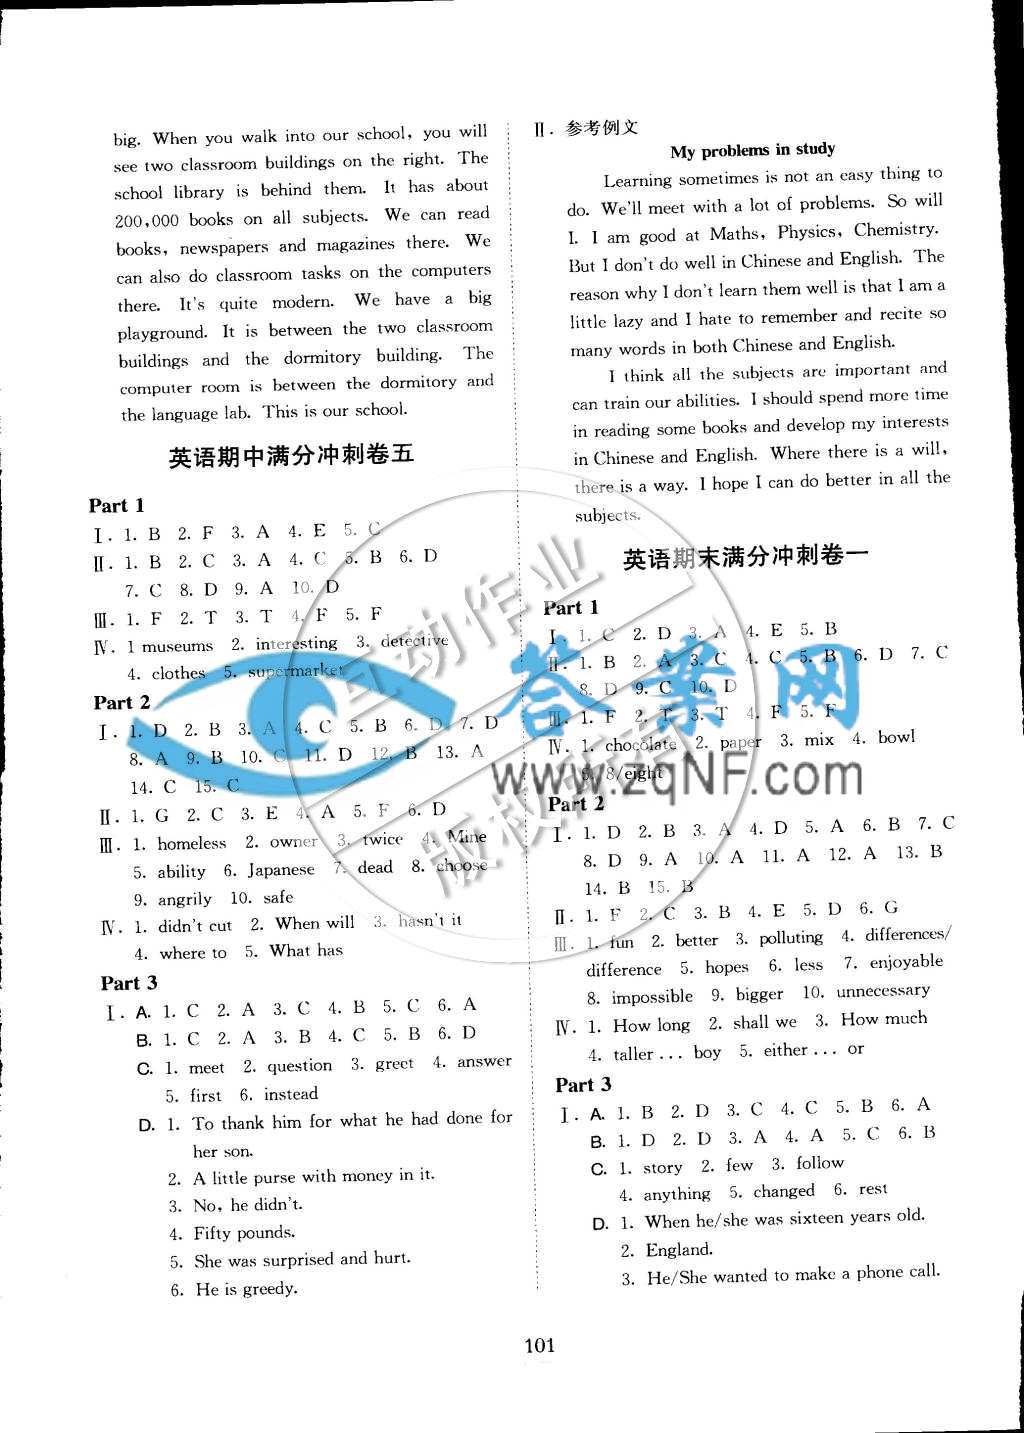 big. When you walk into our school, you will
see two classroom buildings on the right. The
school library is behind them. It has about
200,000 books on all subjects. We can read
books, newspapers and magazines there. We
can also do classroom tasks on the computers
there. It's quite modern. We have a big
playground. It is between the two classroom
buildings and the dormitory building. The
computer room is between the dormitory and
the language lab. This is our school.
英语期中满分冲刺卷五
Part 1
Ⅰ. 1. B 2. F 3. A 4. E 5. C
Ⅱ. 1. B 2. C 3. A 4. C 5. B 6. D
7. C 8. D 9. A 10. D
Ⅲ. 1. F 2. T 3. T 4. F 5. F
Ⅳ. 1 museums 2. interesting 3. detective
4. clothes 5. supermarket
Part 2
Ⅰ. 1. D 2. B 3. A 4. C 5. B 6. D 7. D
8. A 9. B 10. C 11. D 12. B 13. A
14. C 15. C
Ⅱ. 1. G 2. C 3. E 4. A 5. F 6. D
Ⅲ. 1. homeless 2. owner 3. twice 4. Mine
5. ability 6. Japanese 7. dead 8. choose
9. angrily 10. safe
Ⅳ. 1. didn't cut 2. When will 3. hasn't it
4. where to 5. What has
Part 3
Ⅰ. A. 1. C 2. A 3. C 4. B 5. C 6. A
B. 1. C 2. A 3. B 4. C 5. B 6. D
C. 1. meet 2. question 3. greet 4. answer
5. first 6. instead
D. 1. To thank him for what he had done for
her son.
2. A little purse with money in it.
3. No, he didn't.
4. Fifty pounds.
5. She was surprised and hurt.
6. He is greedy.
Ⅱ. 参考例文
My problems in study
Learning sometimes is not an easy thing to
do. We'll meet with a lot of problems. So will
I. I am good at Maths, Physics, Chemistry.
But I don't do well in Chinese and English. The
reason why I don't learn them well is that I am a
little lazy and I hate to remember and recite so
many words in both Chinese and English.
I think all the subjects are important and
can train our abilities. I should spend more time
in reading some books and develop my interests
in Chinese and English. Where there is a will,
there is a way. I hope I can do better in all the
subjects.
英语期末满分冲刺卷一
Part 1
Ⅰ. 1. C 2. D 3. A 4. E 5. B
Ⅱ. 1. B 2. A 3. C 4. C 5. B 6. D 7. C
8. D 9. C 10. D
Ⅲ. 1. F 2. T 3. T 4. F 5. F
Ⅳ. 1. chocolate 2. paper 3. mix 4. bowl
5. 8/eight
Part 2
Ⅰ. 1. D 2. B 3. A 4. D 5. A 6. B 7. C
8. D 9. A 10. A 11. A 12. A 13. B
14. B 15. B
Ⅱ. 1. F 2. C 3. B 4. E 5. D 6. G
Ⅲ. 1. fun 2. better 3. polluting 4. differences/
difference 5. hopes 6. less 7. enjoyable
8. impossible 9. bigger 10. unnecessary
Ⅳ. 1. How long 2. shall we 3. How much
4. taller ... boy 5. either ... or
Part 3
Ⅰ. A. 1. B 2. D 3. C 4. C 5. B 6. A
B. 1. D 2. D 3. A 4. A 5. C 6. B
C. 1. story 2. few 3. follow
4. anything 5. changed 6. rest
D. 1. When he/she was sixteen years old.
2. England.
3. He/She wanted to make a phone call.
101
互动作业
版权所有
答案网
www.zqNF.com